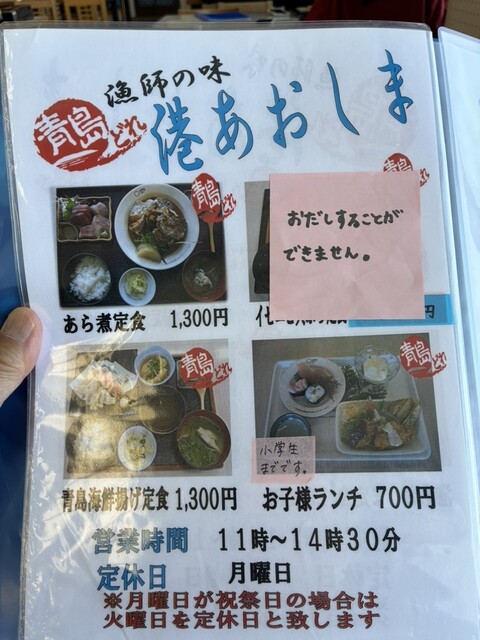 漁師の味
青島どれ
港あおしま
青島どれ
青島
おだしすることが
できません。
あら煮定食 1,300円
円
青島どれ
青島どれ
小学生
までです。
青島海鮮揚げ定食 1,300円
お子様ランチ 700円
営業時間 11時～14時30分
定休日 月曜日
※月曜日が祝祭日の場合は
火曜日を定休日と致します